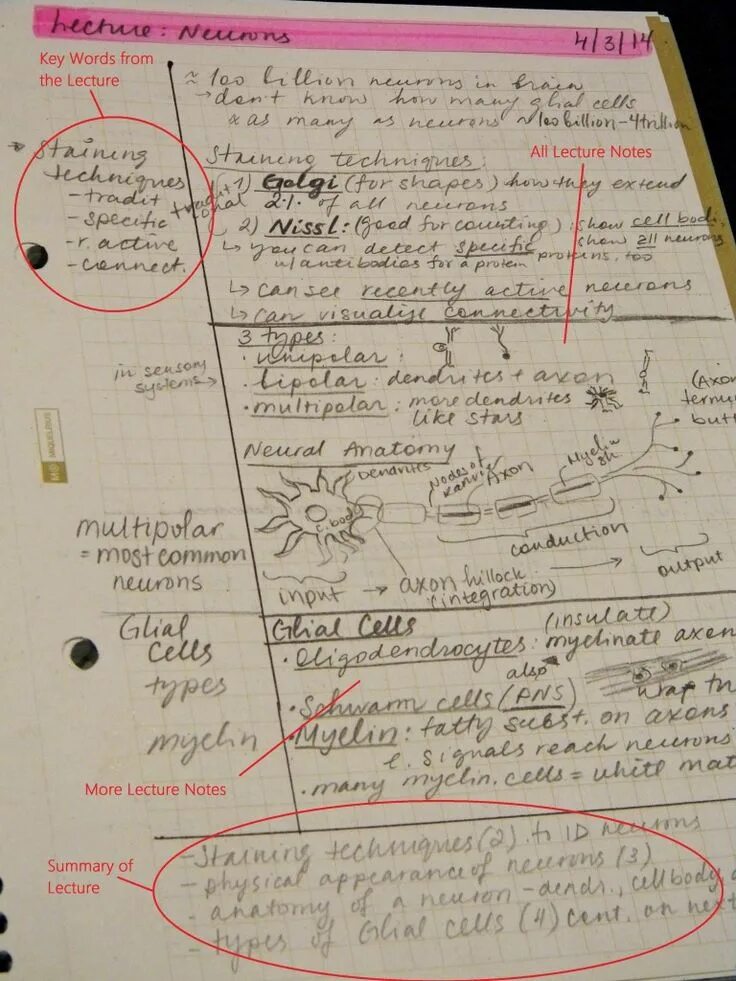 Lecture: Neurons 4/3/14
Key Words from
the Lecture
≈ 100 billion neurons in brain
→ don't know how many glial cells
as many as neurons ≈ 100 billion - 4 trillion
→ Staining
techniques
- tradit
- specific
- r. active
- connect.
Staining techniques:
All Lecture Notes
traditional
1) Golgi (for shapes) how they extend
2% of all neurons
2) Nissl: (good for counting): show cell bodi.
show all neurons
↳ you can detect specific proteins, too
w/ antibodies for a protein
↳ can see recently active neurons
↳ can visualise connectivity
3 types:
in sensory
systems →
· unipolar:
· bipolar: dendrites + axon
· multipolar: more dendrites
like stars
(Axon
butt
Neural Anatomy
Dendrites
Nodes of
Ranvier
Axon
Myelin
sh.
c. body
conduction
multipolar
= most common
neurons
input → axon hillock → output
(integration)
Glial
Cells
types
myelin
Glial Cells
(insulate)
· Oligodendrocytes: myelinate axon
also
· Schwarm cells (PNS)
wrap
· Myelin: fatty subst. on axons
signals reach neurons
· many myelin. cells = white mat
More Lecture Notes
Summary of
Lecture
- Staining techniques (2) to ID neurons
- physical appearance of neurons (3)
- anatomy of a neuron - dendr., cell body
- types of Glial cells (4) cont. on next
MIQUELRIUS